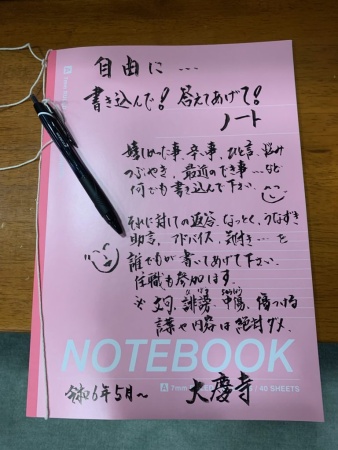 自由に…
書き込んで！答えてあげて！
ノート
嬉しかった事、辛い事、ひと言、悩み
つぶやき、最近のでき事…など
何でも書き込んで下さい。
それに対しての返答、なっとく、うなずき
助言、アドバイス、気付き…を
誰でもが書いてあげて下さい。
住職も参加します。
※ 文句、誹謗、中傷、傷つける
言葉や内容は絶対ダメ。
NOTEBOOK
A 7mm / 40 SHEETS
令和6年5月〜 大慶寺